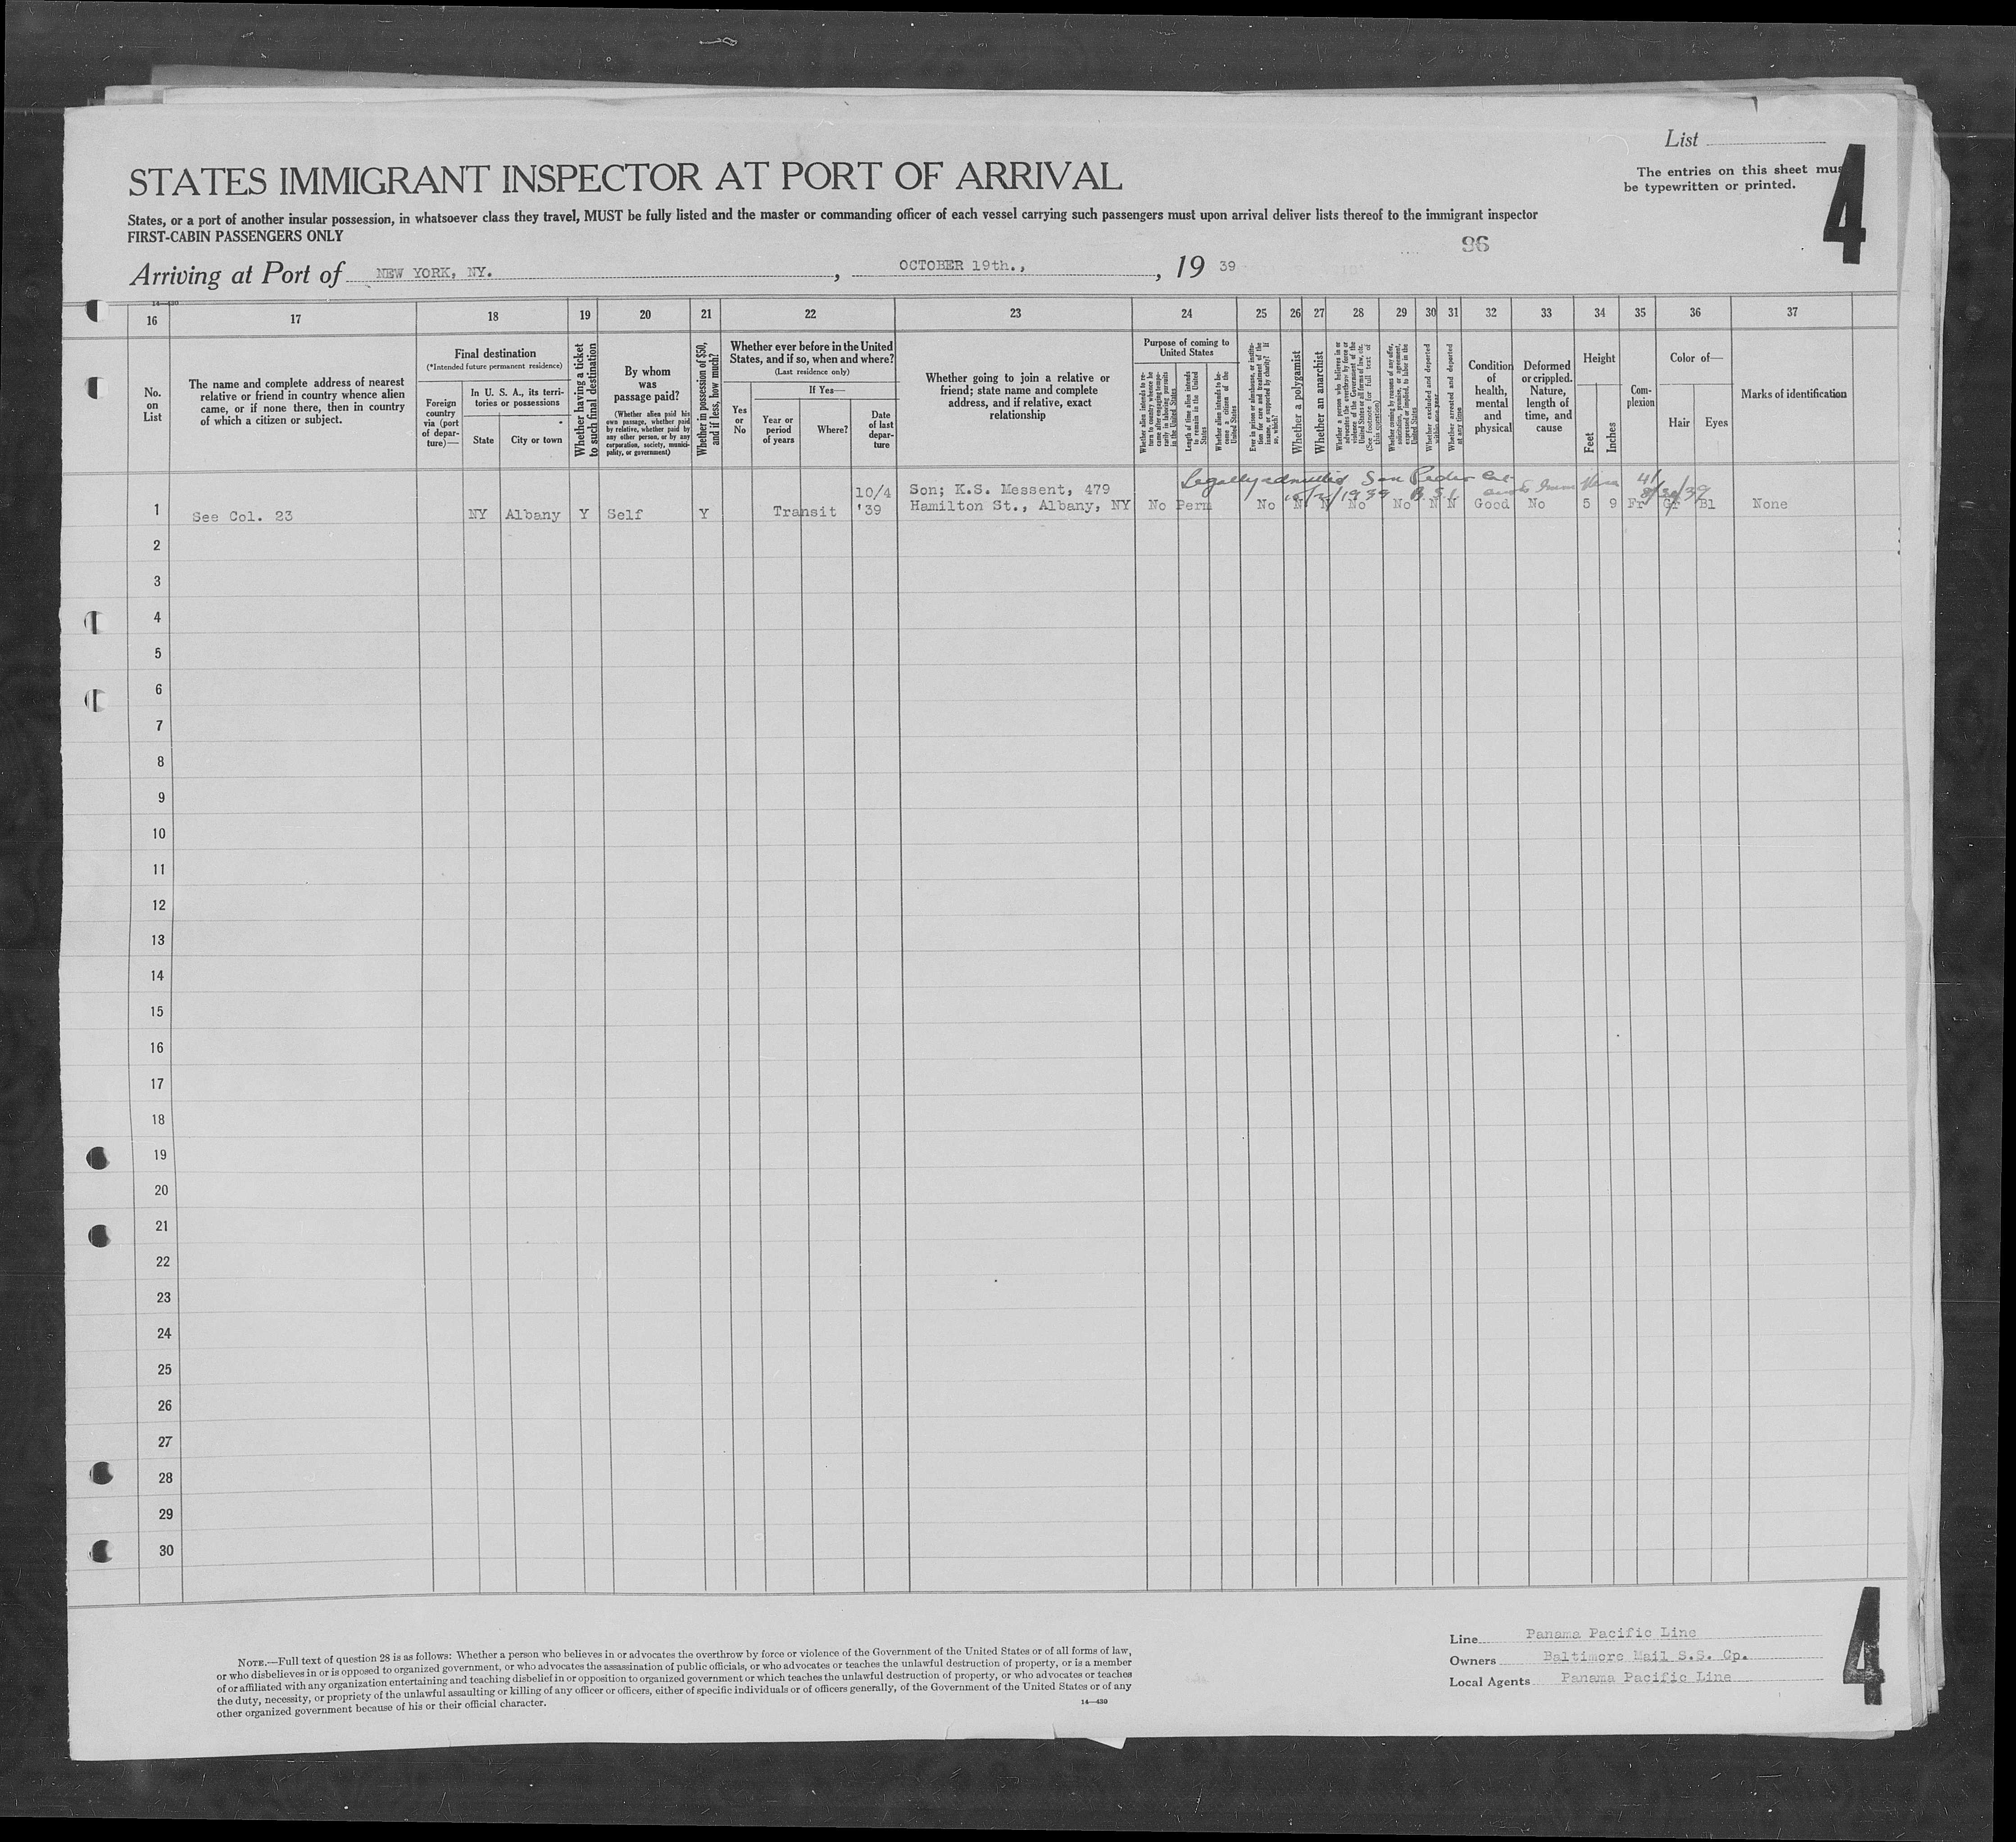 List
The entries on this sheet mus
be typewritten or printed.
4
STATES IMMIGRANT INSPECTOR AT PORT OF ARRIVAL
States, or a port of another insular possession, in whatsoever class they travel, MUST be fully listed and the master or commanding officer of each vessel carrying such passengers must upon arrival deliver lists thereof to the immigrant inspector
FIRST-CABIN PASSENGERS ONLY
96
Arriving at Port of NEW YORK, NY. , OCTOBER 19th., , 19 39
16 17 18 19 20 21 22 23 24 25 26 27 28 29 30 31 32 33 34 35 36 37
No.
on
List
The name and complete address of nearest
relative or friend in country whence alien
came, or if none there, then in country
of which a citizen or subject.
Final destination
(*Intended future permanent residence)
Foreign
country
via (port
of depar-
ture)—
In U. S. A., its terri-
tories or possessions
State
City or town
Whether having a ticket
to such final destination
By whom
was
passage paid?
(Whether alien paid his
own passage, whether paid
by relative, whether paid by
any other person, or by any
corporation, society, munici-
pality, or government)
Whether in possession of $50,
and if less, how much?
Whether ever before in the United
States, and if so, when and where?
(Last residence only)
Yes
or
No
If Yes—
Year or
period
of years
Where?
Date
of last
depar-
ture
Whether going to join a relative or
friend; state name and complete
address, and if relative, exact
relationship
Purpose of coming to
United States
Whether alien intends to re-
turn to country whence he
came after engaging tempo-
rarily in laboring pursuits
in the United States
Length of time alien intends
to remain in the United
States
Whether alien intends to be-
come a citizen of the
United States
Ever in prison or almshouse, or institu-
tion for care and treatment of the
insane, or supported by charity? If
so, which?
Whether a polygamist
Whether an anarchist
Whether a person who believes in or
advocates the overthrow by force or
violence of the Government of the
United States or all forms of law, etc.
(See footnote for full text of
this question)
Whether coming by reason of any offer,
solicitation, promise, or agreement,
expressed or implied, to labor in the
United States
Whether excluded and deported
within one year
Whether arrested and deported
at any time
Condition
of
health,
mental
and
physical
Deformed
or crippled.
Nature,
length of
time, and
cause
Height
Feet
Inches
Com-
plexion
Color of—
Hair
Eyes
Marks of identification
Legally admitted San Pedro Cal
10/ /1939 B.S.I. Imm Visa 41
8/30/39
10/4 Son; K.S. Messent, 479
1 See Col. 23 NY Albany Y Self Y Transit '39 Hamilton St., Albany, NY No Perm No N N No No N N Good No 5 9 Fr Gr Bl None
2
3
4
5
6
7
8
9
10
11
12
13
14
15
16
17
18
19
20
21
22
23
24
25
26
27
28
29
30
NOTE.—Full text of question 28 is as follows: Whether a person who believes in or advocates the overthrow by force or violence of the Government of the United States or of all forms of law,
or who disbelieves in or is opposed to organized government, or who advocates the assassination of public officials, or who advocates or teaches the unlawful destruction of property, or is a member
of or affiliated with any organization entertaining and teaching disbelief in or opposition to organized government or which teaches the unlawful destruction of property, or who advocates or teaches
the duty, necessity, or propriety of the unlawful assaulting or killing of any officer or officers, either of specific individuals or of officers generally, of the Government of the United States or of any
other organized government because of his or their official character.
14—430
Line Panama Pacific Line
Owners Baltimore Mail S.S. Cp.
Local Agents Panama Pacific Line
4